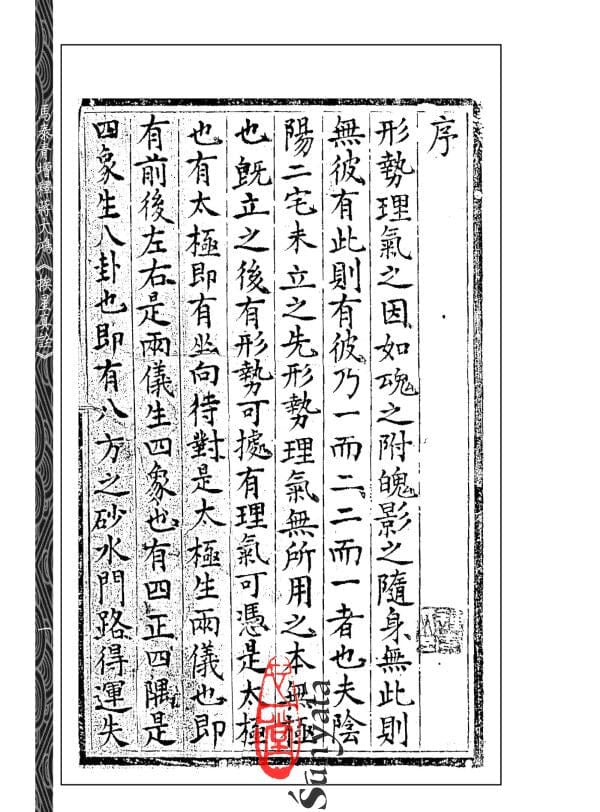 序
形勢理氣之因如魂之附魄影之隨身無此則
無彼有此則有彼乃一而二二而一者也夫陰
陽二宅未立之先形勢理氣無所用之本無極
也既立之後有形勢可據有理氣可憑是太極
也有太極即有坐向待對是太極生兩儀也即
有前後左右是兩儀生四象也有四正四隅是
四象生八卦也即有八方之砂水門路得運失
馬泰青增釋蔣大鴻《挨星真詮》
一
心一堂
Śūnyatā